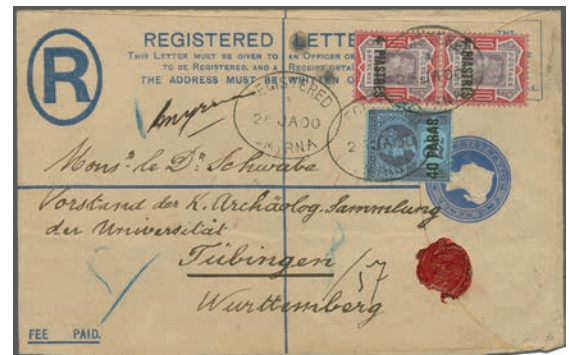 REGISTERED LETTER
THIS LETTER MUST BE GIVEN TO AN OFFICER OF
TO BE REGISTERED, AND A RECEIPT
THE ADDRESS MUST BE WRITTEN
R
4 PIASTRES
4 PIASTRES
40 PARAS
REGISTERED
26 JA 00
SMYRNA
Smyrna
Monsr. le Dr. Schwabe
Vorstand der K. Archäolog. Sammlung
der Universität
Tübingen
Württemberg
57
FEE PAID.